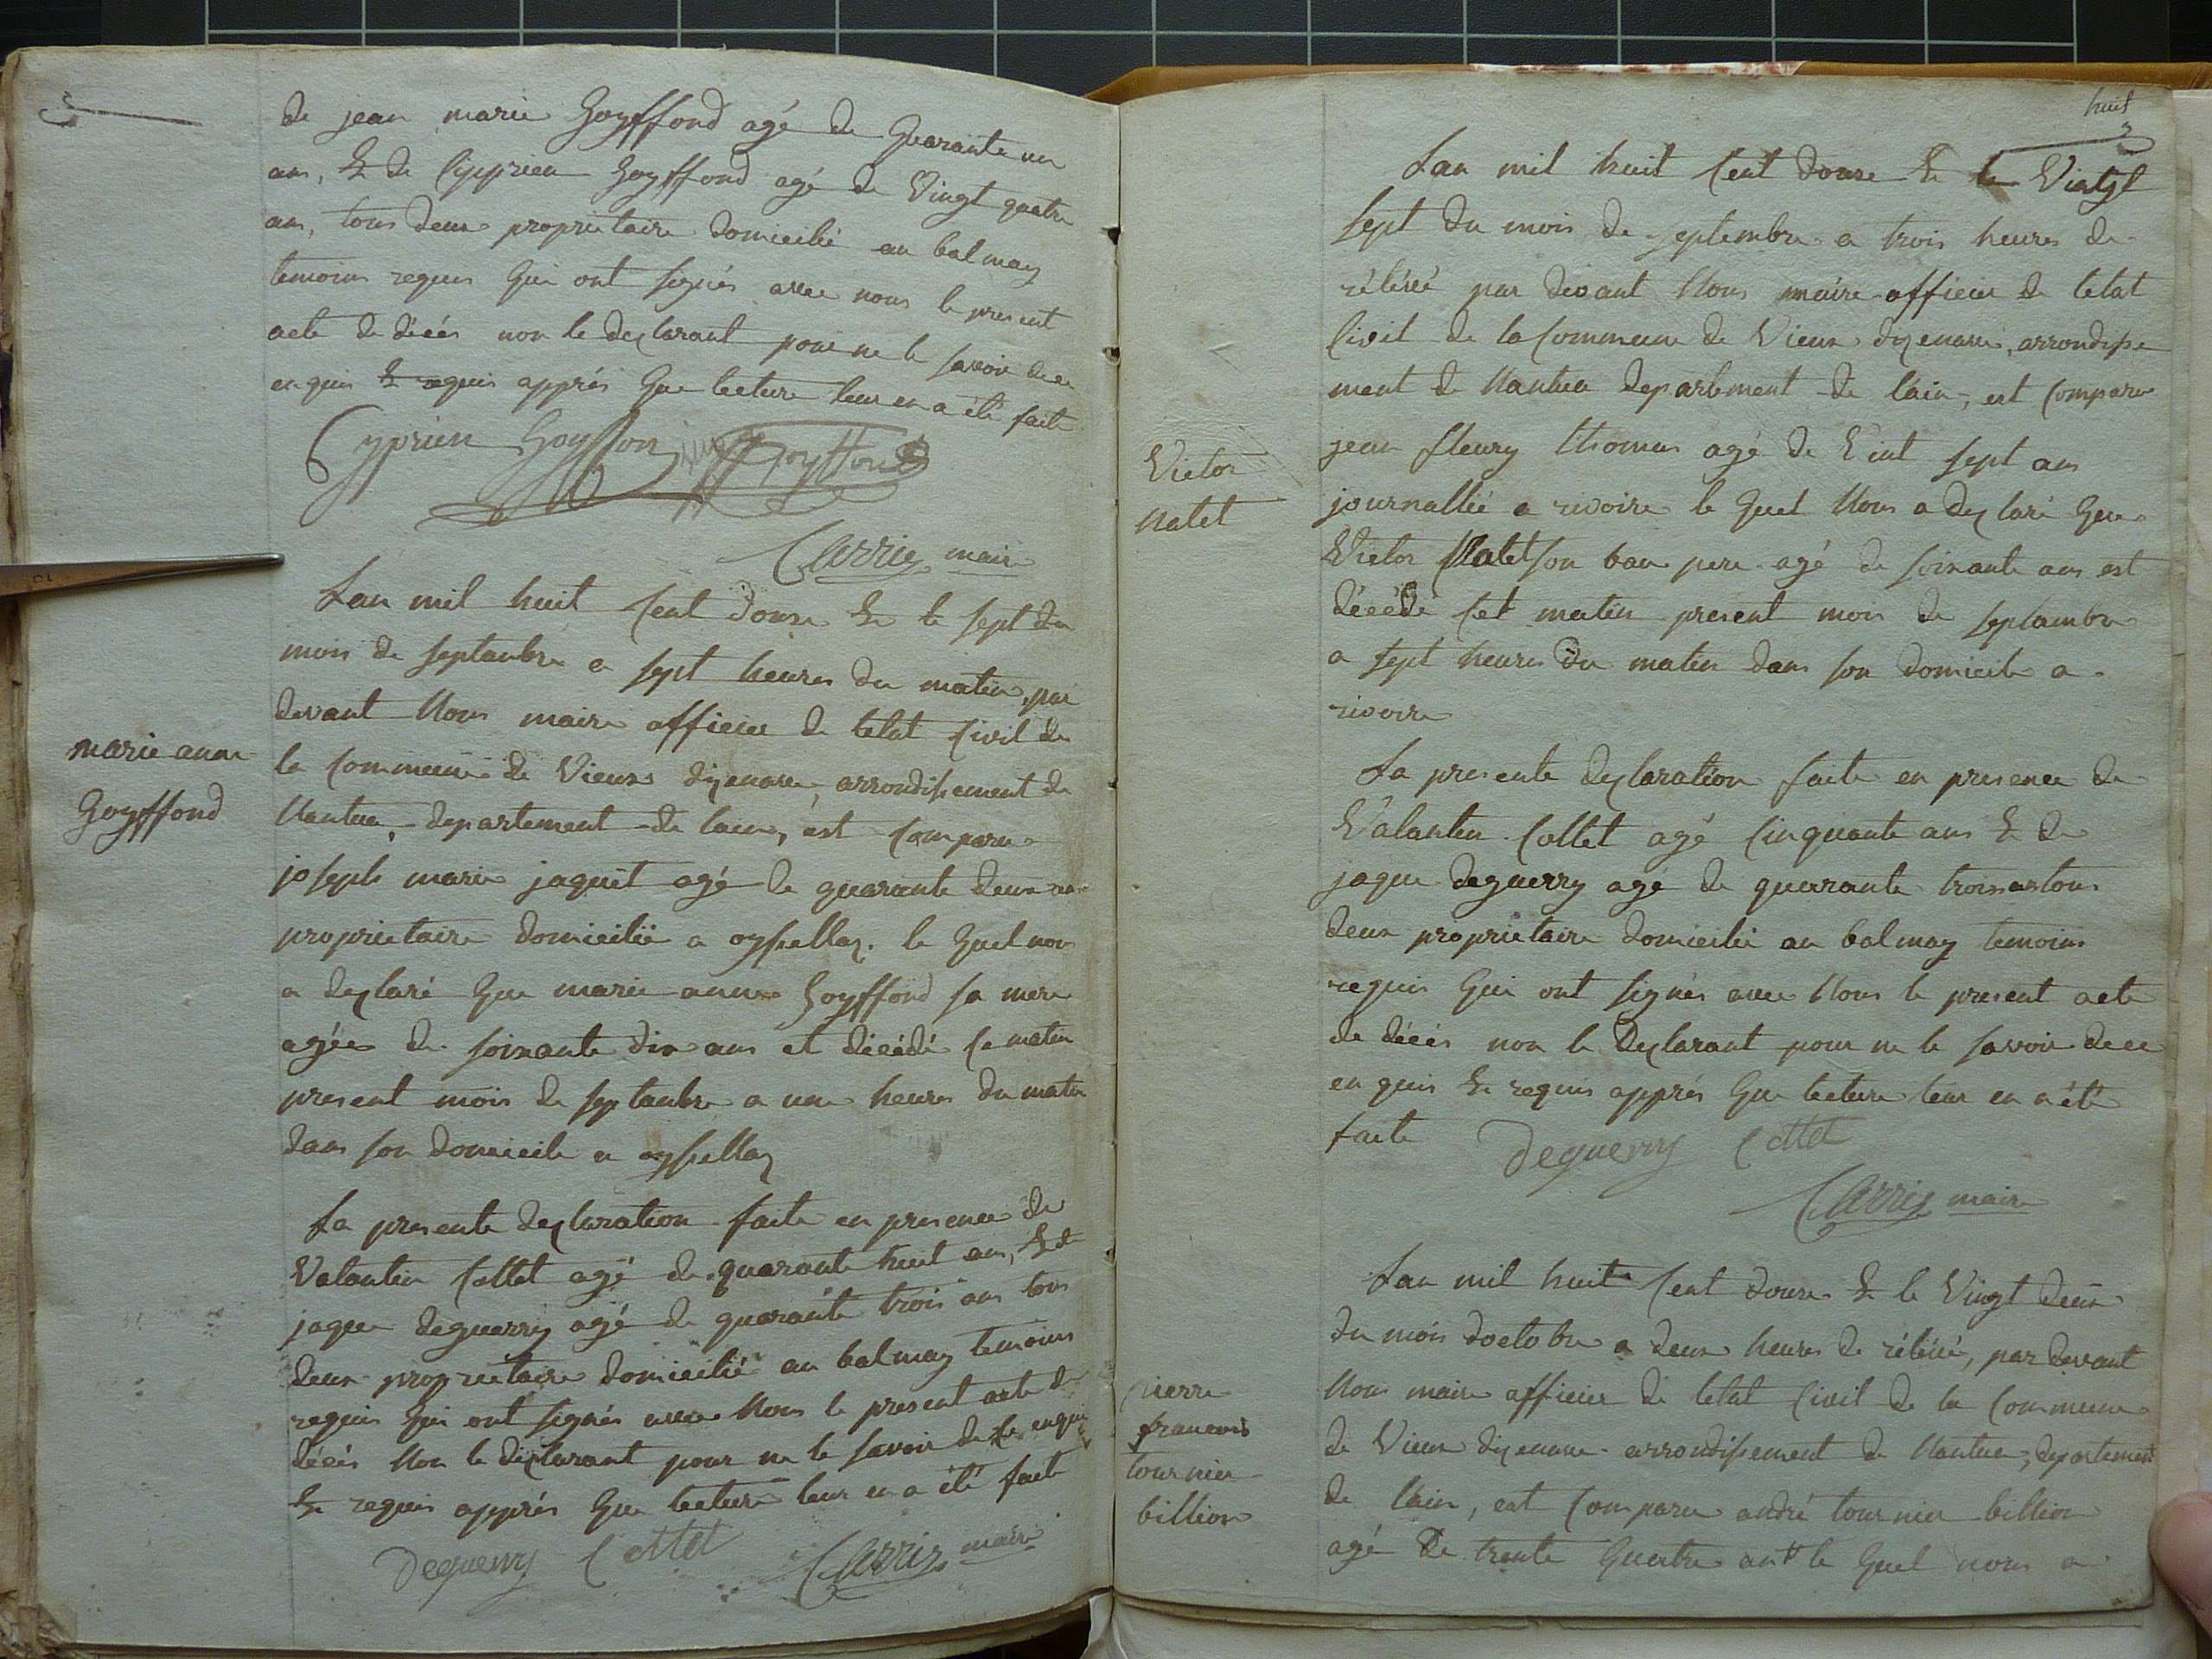 de jean marie Goyffond agé de Quarante un
ans, & de Cipprien Goyffond agé de Vingt quatre
ans, tous deux proprietaire domicilié au balmay
temoins requis Qui ont signés avec nous le present
acte de décés non le declarant pour ne le savoir de ce
enquis & requis apprés Que lecture leur en a été faite
Cyprien Goyffon Goyffond
Carrier maire
marie anne
Goyffond
Lan mil huit Cent douze & le sept du
mois de septanbre a sept heures du matin, par
devant Nous maire officier de letat Civil de
la Commune de Vieux dizenave, arrondissement de
Nantua, departement de lain, est Comparu
joseph marie jaquet agé de quarante deux ans
proprietaire domicilié a oyssellaz. le Quel nous
a declaré Que marie anne Goyffond sa mere
agée de soixante dix ans et décédé Ce matin
present mois de septanbre a une heures du matin
dans son domicile a oyssellaz
La presente declaration faite en presence de
Valantin Collet agé de quarante huit ans, & de
jaque deguerry agé de quarante trois ans tous
deux proprietaire domicilié au balmay temoins
requis Qui ont signés avec Nous le present acte de
décés Non le declarant pour ne le savoir de ce enquis
& requis apprés Que lecture leur en a été faite
Deguerry Collet Carrier maire
huit
Lan mil huit Cent douze & le Vingt
sept du mois de septembre a trois heures de
rélévé par devant Nous maire officier de letat
Civil de la Commune de Vieux dizenave, arrondisse
ment de Nantua departement de lain, est Comparu
jean fleury thomas agé de Vint sept ans
journallié a rivoire le Quel Nous a declaré Que
Victor Natet son bau pere agé de soixante ans est
décédé Cet matin present mois de septambre
a sept heures du matin dans son domicile a
rivoire
Victor
Natet
La presente declaration faite en presence de
Valantin Collet agé Cinquante ans & de
jaque deguerry agé de quarante trois ans tous
deux proprietaire domicilié au balmay temoins
requis Qui ont signés avec Nous le present acte
de décés non le declarant pour ne le savoir de ce
enquis & requis apprés Que lecture leur en a été
faite Deguerry Collet
Carrier maire
pierre
francois
tournier
billion
Lan mil huit Cent douze & le Vingt deux
du mois doctobre a deux heures de rélévé, par devant
Nous maire officier de letat Civil de la Commune
de Vieux dizenave arrondissement de Nantua, departement
de lain, est Comparu andré tournier billion
agé de trente Quatre ans le Quel nous a